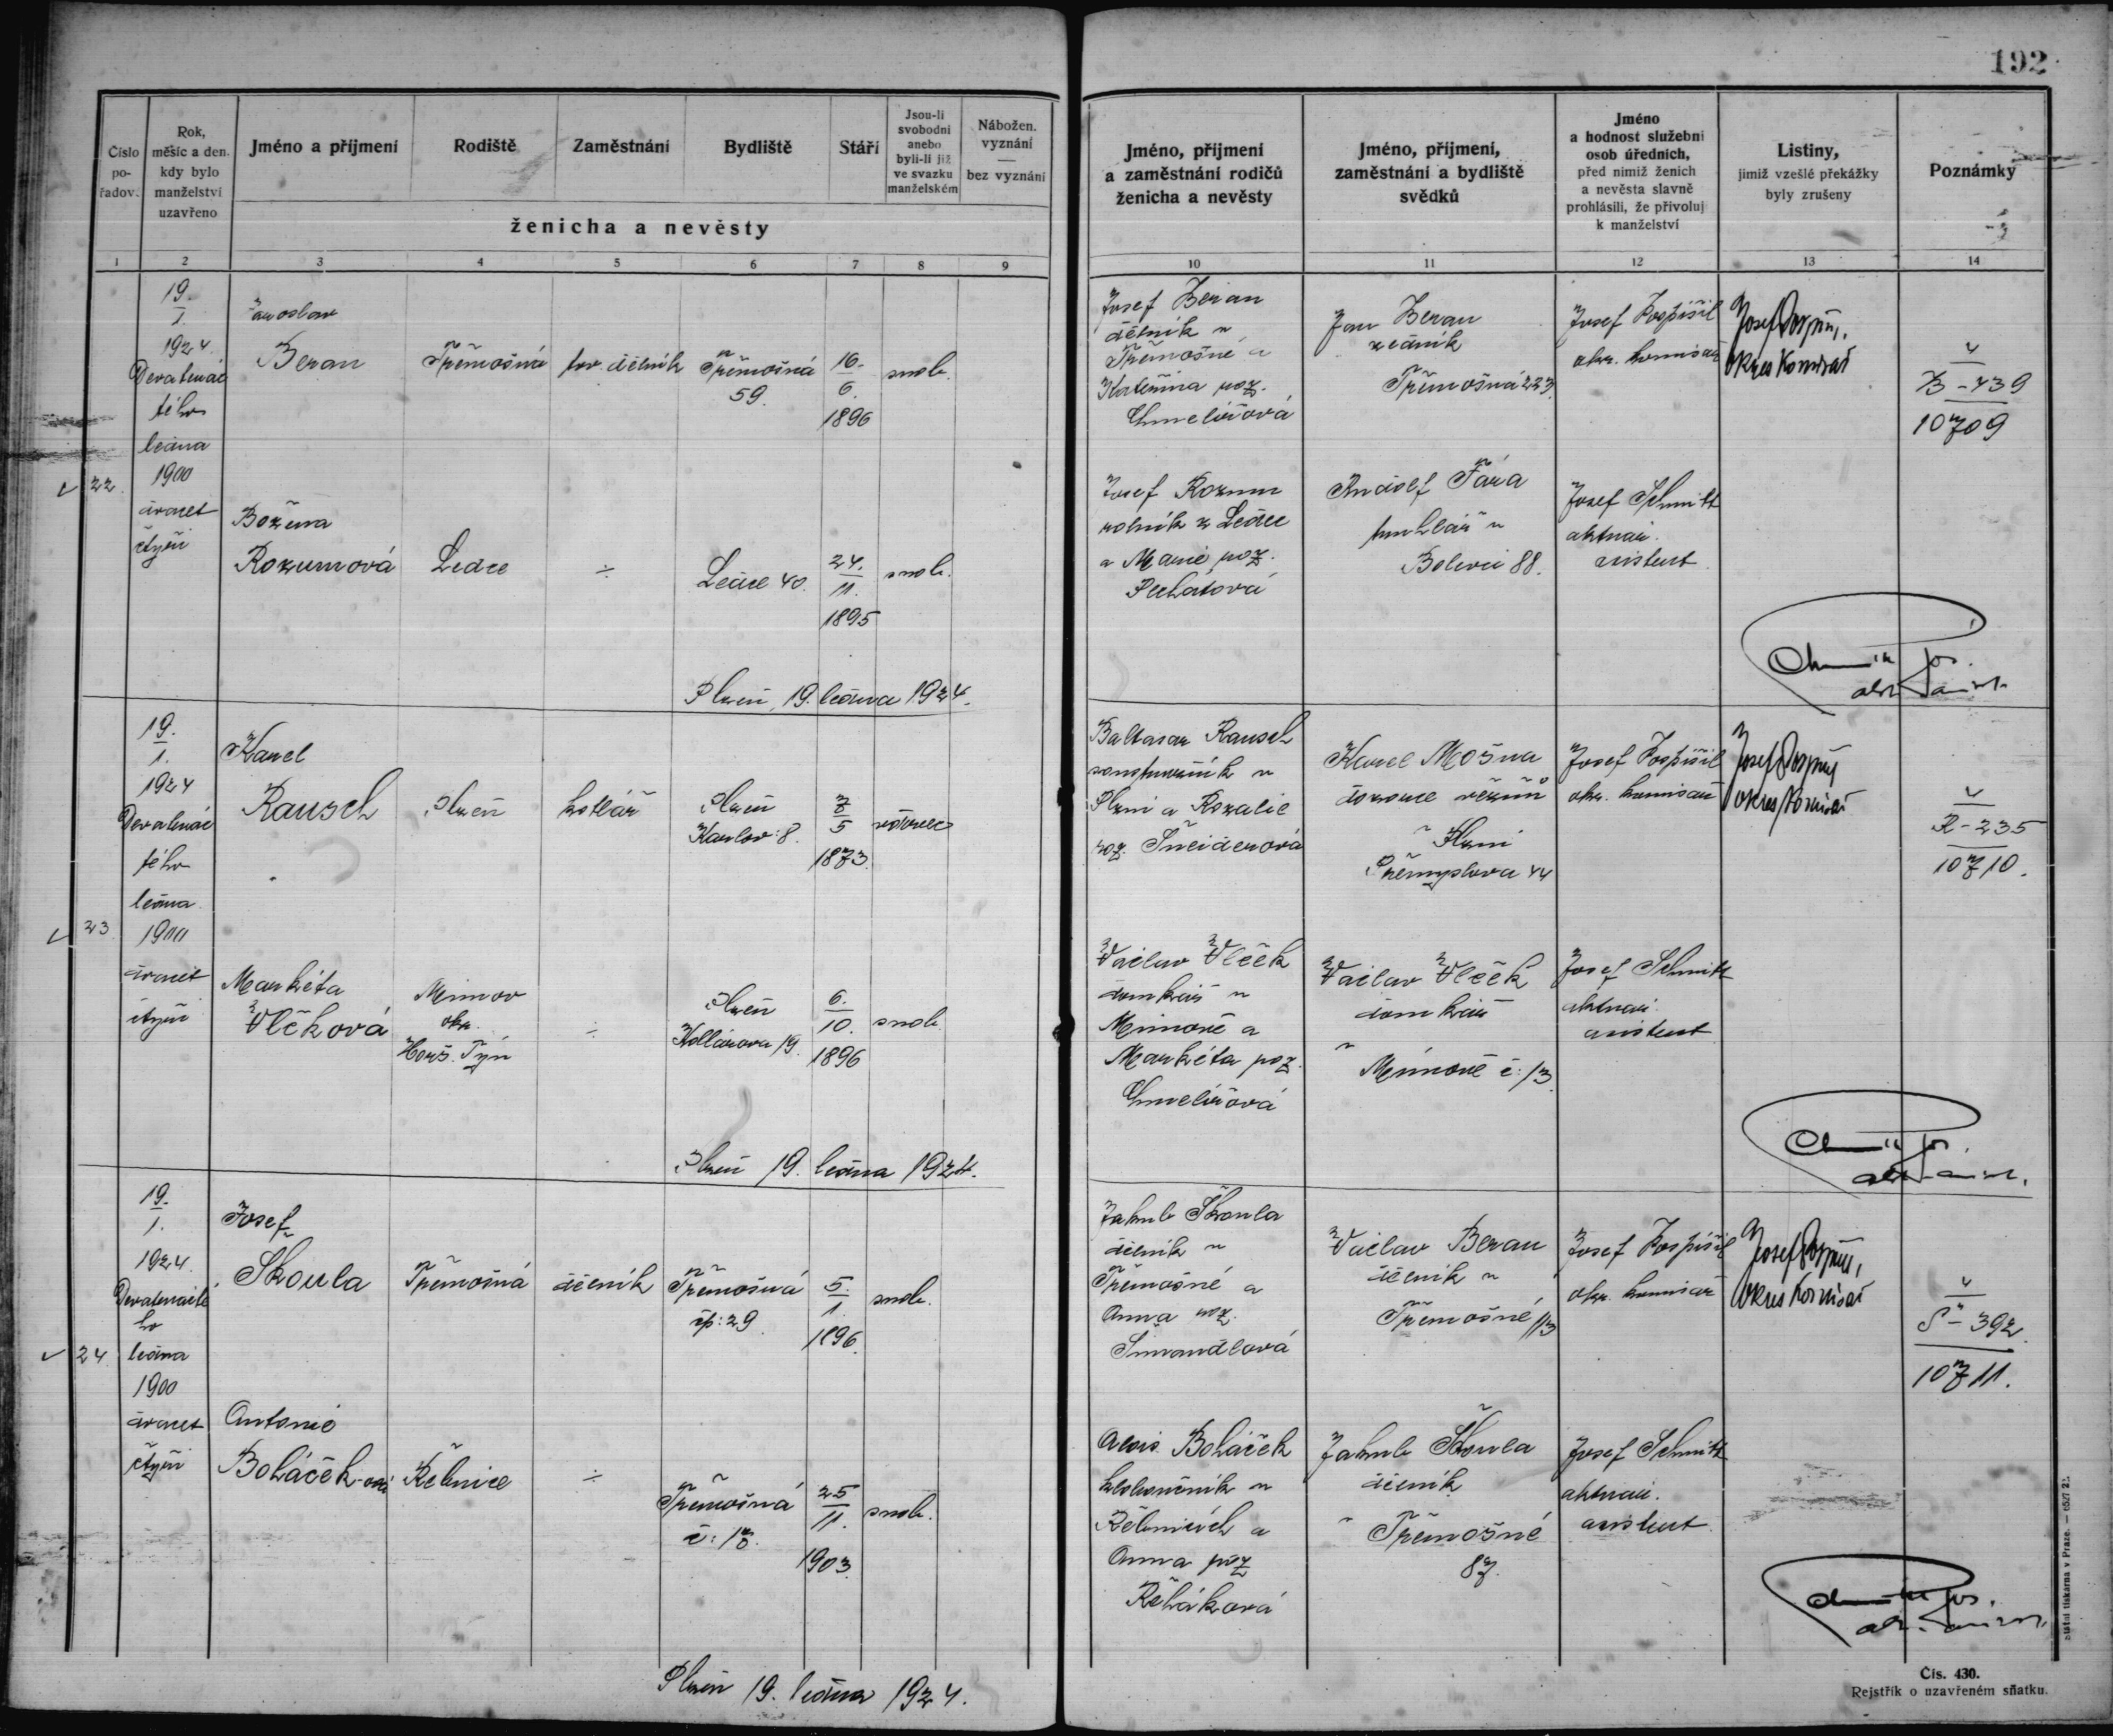 192
Číslo pořadov.
Rok, měsíc a den kdy bylo manželství uzavřeno
Jméno a příjmení
Rodiště
Zaměstnání
Bydliště
Stáří
Jsou-li svobodni anebo byli-li již ve svazku manželském
Nábožen. vyznání — bez vyznání
ženicha a nevěsty
Jméno, příjmení a zaměstnání rodičů ženicha a nevěsty
Jméno, příjmení, zaměstnání a bydliště svědků
Jméno a hodnost služební osob úředních, před nimiž ženich a nevěsta slavně prohlásili, že přivolují k manželství
Listiny, jimiž vzešlé překážky byly zrušeny
Poznámky
1 2 3 4 5 6 7 8 9 10 11 12 13 14
22
19.
1.
1924
Devatenác
tého
ledna
1900
dvacet
čtyři
Jaroslav
Beran
Třemošná
tov. dělník
Třemošná
59.
16.
6.
1896
svob.
Josef Beran
dělník v
Třemošné a
Kateřina roz.
Chmelířová
Jan Beran
zedník
Třemošná 223.
Josef Pospíšil
okr. komisař
Josef Pospíšil,
okres komisař
B - 439
10709
Božena
Rozumová
Ledce
÷
Ledce 40.
24.
11.
1895
svob.
Josef Rozum
rolník z Ledce
a Marie roz.
Pechatová
Rudolf Fára
truhlář v
Bolevci 88.
Josef Schmitt
aktuár.
asistent
Plzeň, 19. ledna 1924.
23
19.
1.
1924
Devatenác
tého
ledna
1900
dvacet
čtyři
Karel
Rausch
Plzeň
kotlář
Plzeň
Karlov: 8.
7
5
1873.
vdovec
Baltasar Rausch
v
Plzni a Rozalie
roz. Šneiderová
Karel Mošna
dozorce vězňů
v Plzni
Přemyslova 44
Josef Pospíšil
okr. komisař
Josef Pospíšil
okres komisař
R - 235
10710.
Markéta
Vlčková
Mimov
okr.
Horš. Týn
÷
Plzeň
Kollárova 19.
6.
10.
1896
svob.
Václav Vlček
domkář v
Mimově a
Markéta roz.
Chmelířová
Václav Vlček
domkář
v Mimově č: 13.
Josef Schmitt
aktuár.
asistent
Plzeň 19. ledna 1924.
24
19.
1.
1924.
Devatenácté
ho
ledna
1900
dvacet
čtyři
Josef
Škoula
Třemošná
dělník
Třemošná
čp: 29.
5.
1.
1896.
svob.
Jakub Škoula
dělník v
Třemošné a
Anna roz.
Šmrandlová
Václav Beran
dělník v
Třemošné 113
Josef Pospíšil
okr. komisař
Josef Pospíšil,
okres komisař
Š - 392.
10711.
Antonie
Boháček-ová
Řebnice
÷
Třemošná
č: 17.
25
11.
1903.
svob.
Alois Boháček
kloboučník v
Řebnicích a
Anna roz
Řeháková
Jakub Škoula
dělník
v Třemošné
87.
Josef Schmitt
aktuár.
asistent
Plzeň 19. ledna 1924.
Státní tiskárna v Praze. — 6527 22.
Čís. 430.
Rejstřík o uzavřeném sňatku.